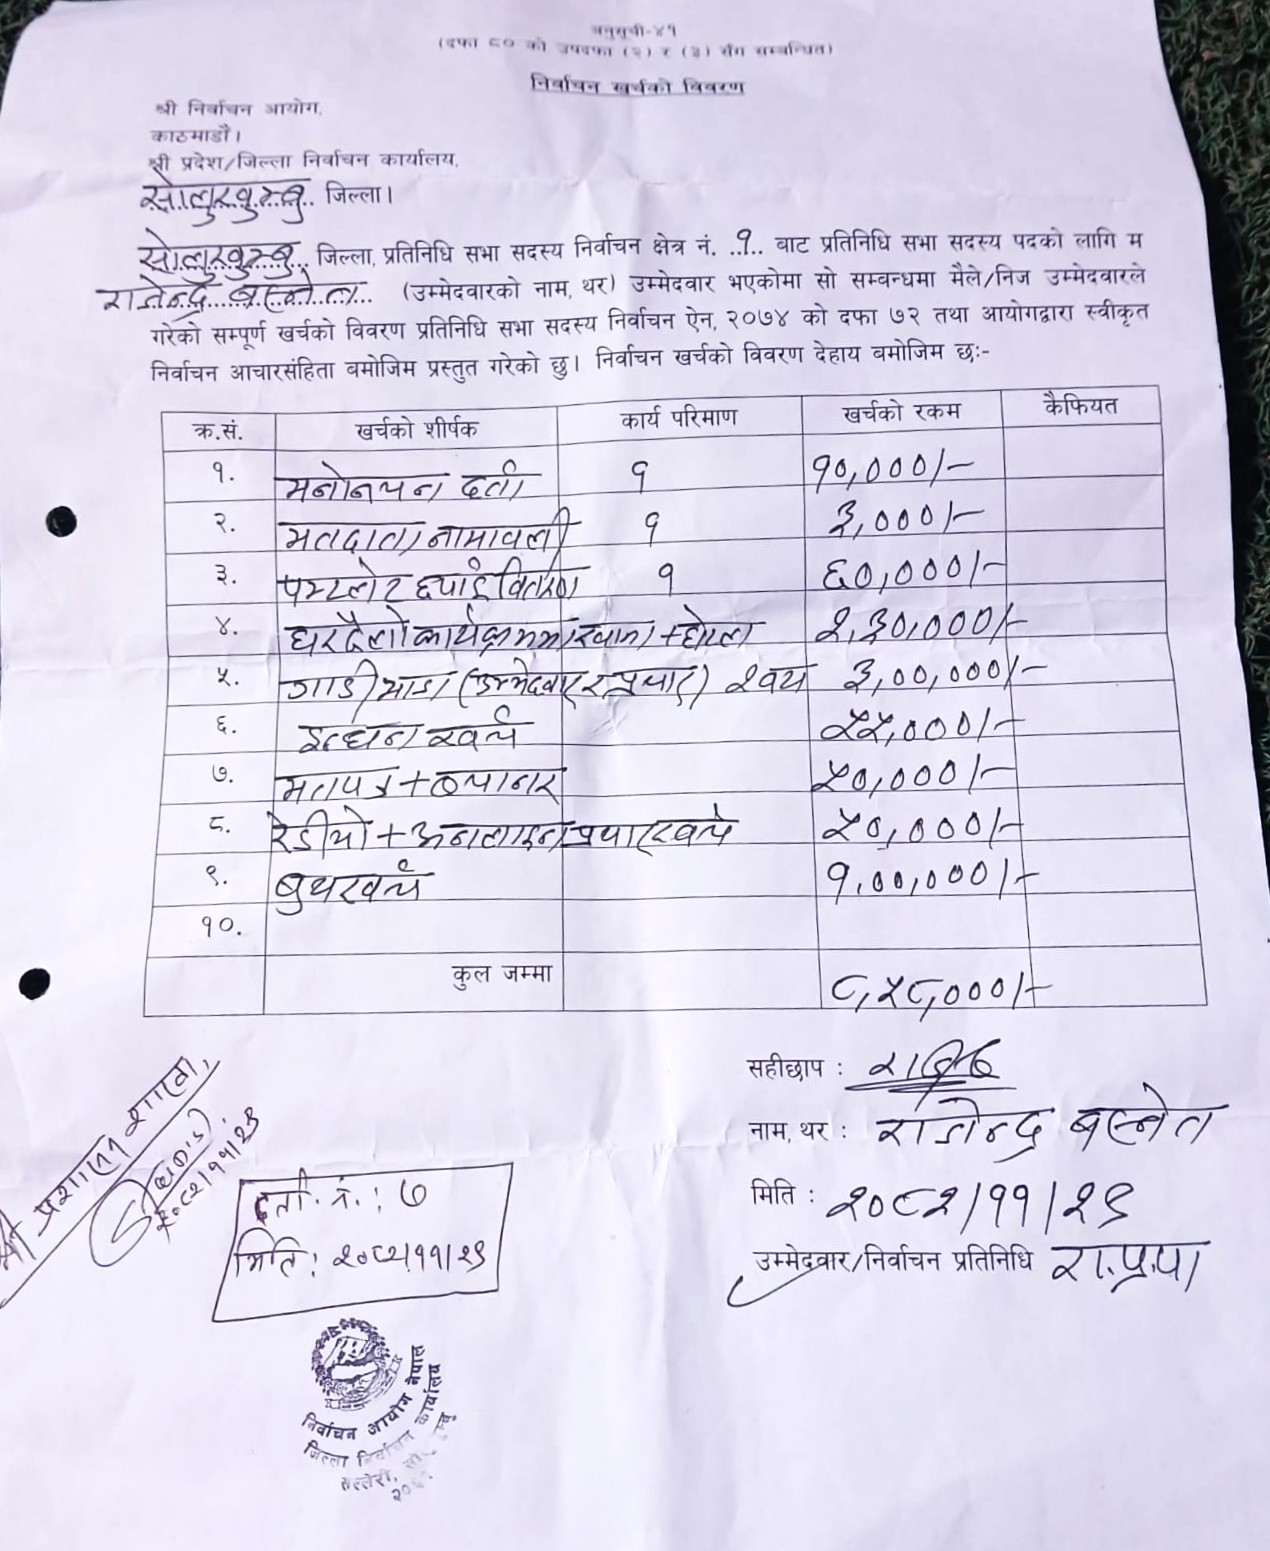 अनुसूची-४१
(दफा ८० को उपदफा (२) र (३) सँग सम्बन्धित)
निर्वाचन खर्चको विवरण
श्री निर्वाचन आयोग,
काठमाडौं।
श्री प्रदेश/जिल्ला निर्वाचन कार्यालय,
सोलुखुम्बु जिल्ला।
सोलुखुम्बु जिल्ला, प्रतिनिधि सभा सदस्य निर्वाचन क्षेत्र नं. ..१.. बाट प्रतिनिधि सभा सदस्य पदको लागि म
राजेन्द्र बस्नेत (उम्मेदवारको नाम, थर) उम्मेदवार भएकोमा सो सम्बन्धमा मैले/निज उम्मेदवारले
गरेको सम्पूर्ण खर्चको विवरण प्रतिनिधि सभा सदस्य निर्वाचन ऐन, २०७४ को दफा ७२ तथा आयोगद्वारा स्वीकृत
निर्वाचन आचारसंहिता बमोजिम प्रस्तुत गरेको छु। निर्वाचन खर्चको विवरण देहाय बमोजिम छः-
क्र.सं. खर्चको शीर्षक कार्य परिमाण खर्चको रकम कैफियत
१. मनोनयन दर्ता १ १०,०००/-
२. मतदाता नामावली १ ३,०००/-
३. पम्प्लेट छपाई वितरण १ ६०,०००/-
४. घरदैलो कार्यक्रममा खाजा + होटल २,३०,०००/-
५. गाडी भाडा (उम्मेदवार र प्रचार) २ वटा ३,००,०००/-
६. इन्धन खर्च ५५,०००/-
७. मतपत्र + ब्यानर ५०,०००/-
८. रेडीयो + अनलाइन प्रचार खर्च ५०,०००/-
९. बुथ खर्च १,००,०००/-
१०.
कुल जम्मा ८,५८,०००/-
सहीछाप :
नाम, थर : राजेन्द्र बस्नेत
मिति : २०८२/११/२९
उम्मेदवार/निर्वाचन प्रतिनिधि रा.प्र.पा
श्री प्रशासन शाखा,
२०८२/११/२९
दर्ता नं. : ७
मिति : २०८२/११/२९
निर्वाचन आयोग नेपाल
जिल्ला निर्वाचन कार्यालय
सल्लेरी,